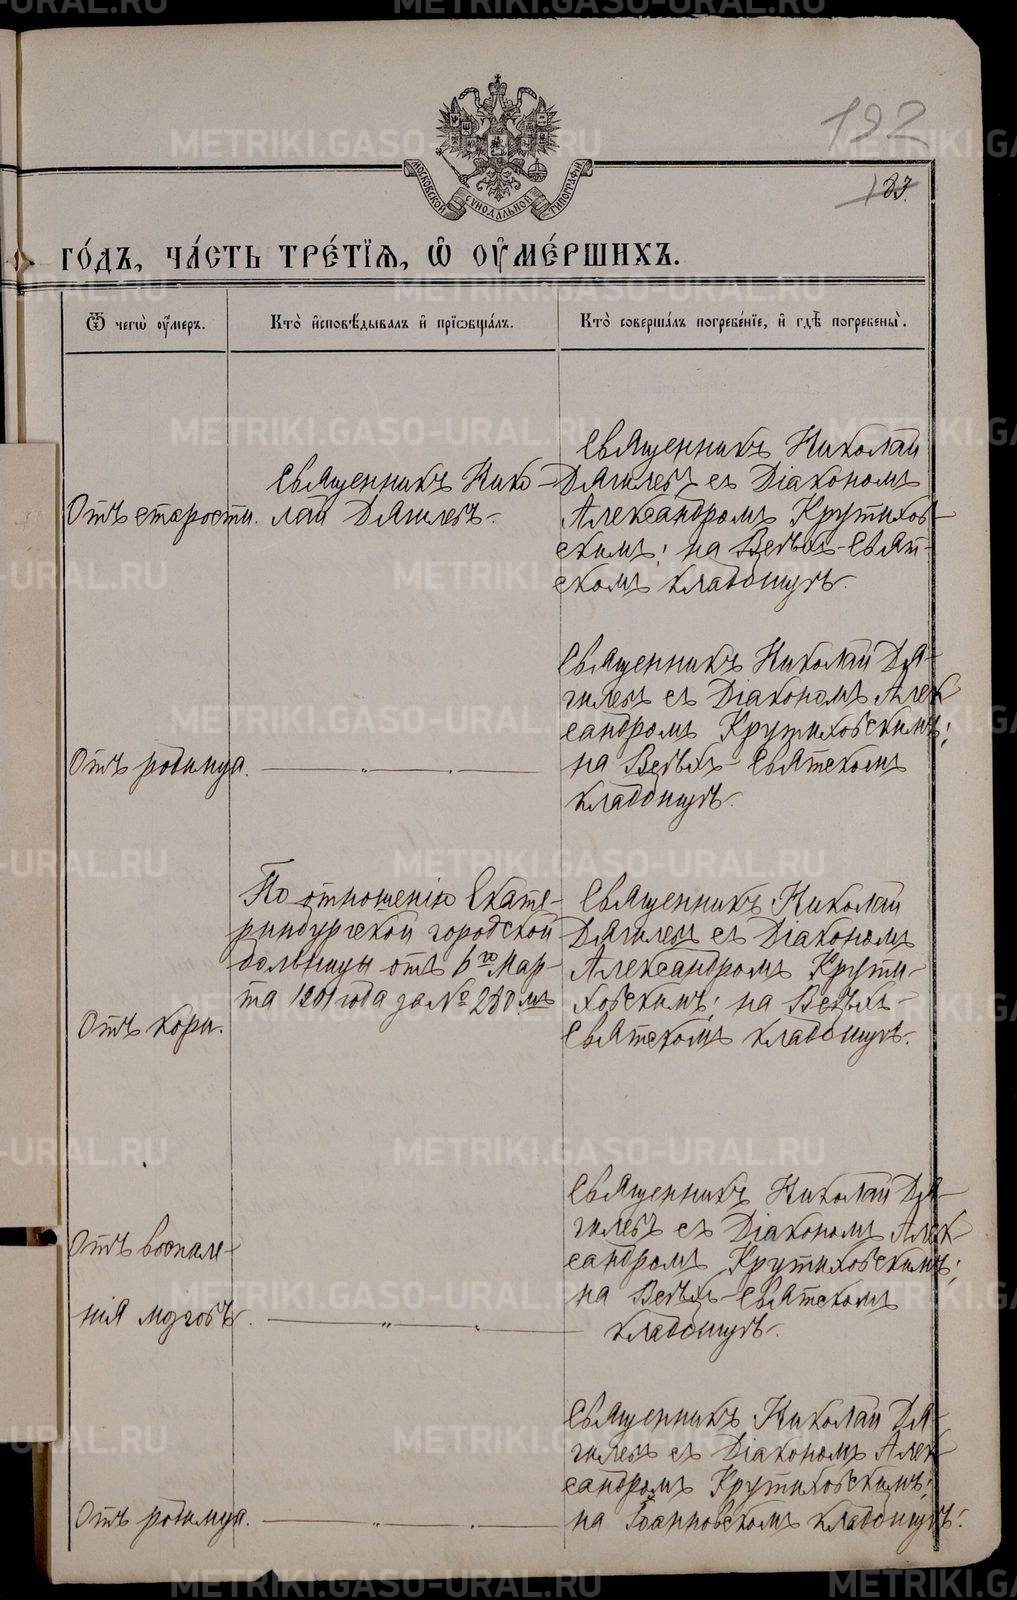 192
183.
МОСКОВСКОЙ СѴНОДАЛЬНОЙ ТИПОГРАФІИ
ГО́ДЪ, ЧА́СТЬ ТРЕ́ТІѦ, Ѡ҆ ОУ҆МЕ́РШИХЪ.
Ѿ чегѡ̀ оу҆́меръ.
Кто̀ и҆сповѣ́дывалъ и҆ прїѡбща́лъ.
Кто̀ соверша́лъ погребе́нїе, и҆ гдѣ̀ погребены̀.
Отъ старости.
Священникъ Нико-
лай Дягилевъ.
Священникъ Николай
Дягилевъ съ Діакономъ
Александромъ Крутихов-
скимъ; на Всѣхъ-Свят-
скомъ кладбищѣ.
Отъ родимца.
— „ — „ —
Священникъ Николай Дя-
гилевъ съ Діакономъ Алек-
сандромъ Крутиховскимъ;
на Всѣхъ-Святскомъ
кладбищѣ.
Отъ кори.
По отношенію Екате-
ринбургской городской
больницы отъ 6го Мар-
та 1901 года за № 280мъ
Священникъ Николай
Дягилевъ съ Діакономъ
Александромъ Крути-
ховскимъ; на Всѣхъ-
Святскомъ кладбищѣ.
Отъ воспале-
нія мозговъ.
— „ — „ —
Священникъ Николай Дя-
гилевъ съ Діакономъ Алек-
сандромъ Крутиховскимъ;
на Всѣхъ-Святскомъ
кладбищѣ.
Отъ родимца.
— „ — „ —
Священникъ Николай Дя-
гилевъ съ Діакономъ Алек-
сандромъ Крутиховскимъ;
на Іоанновскомъ кладбищѣ.
METRIKI.GASO-URAL.RU